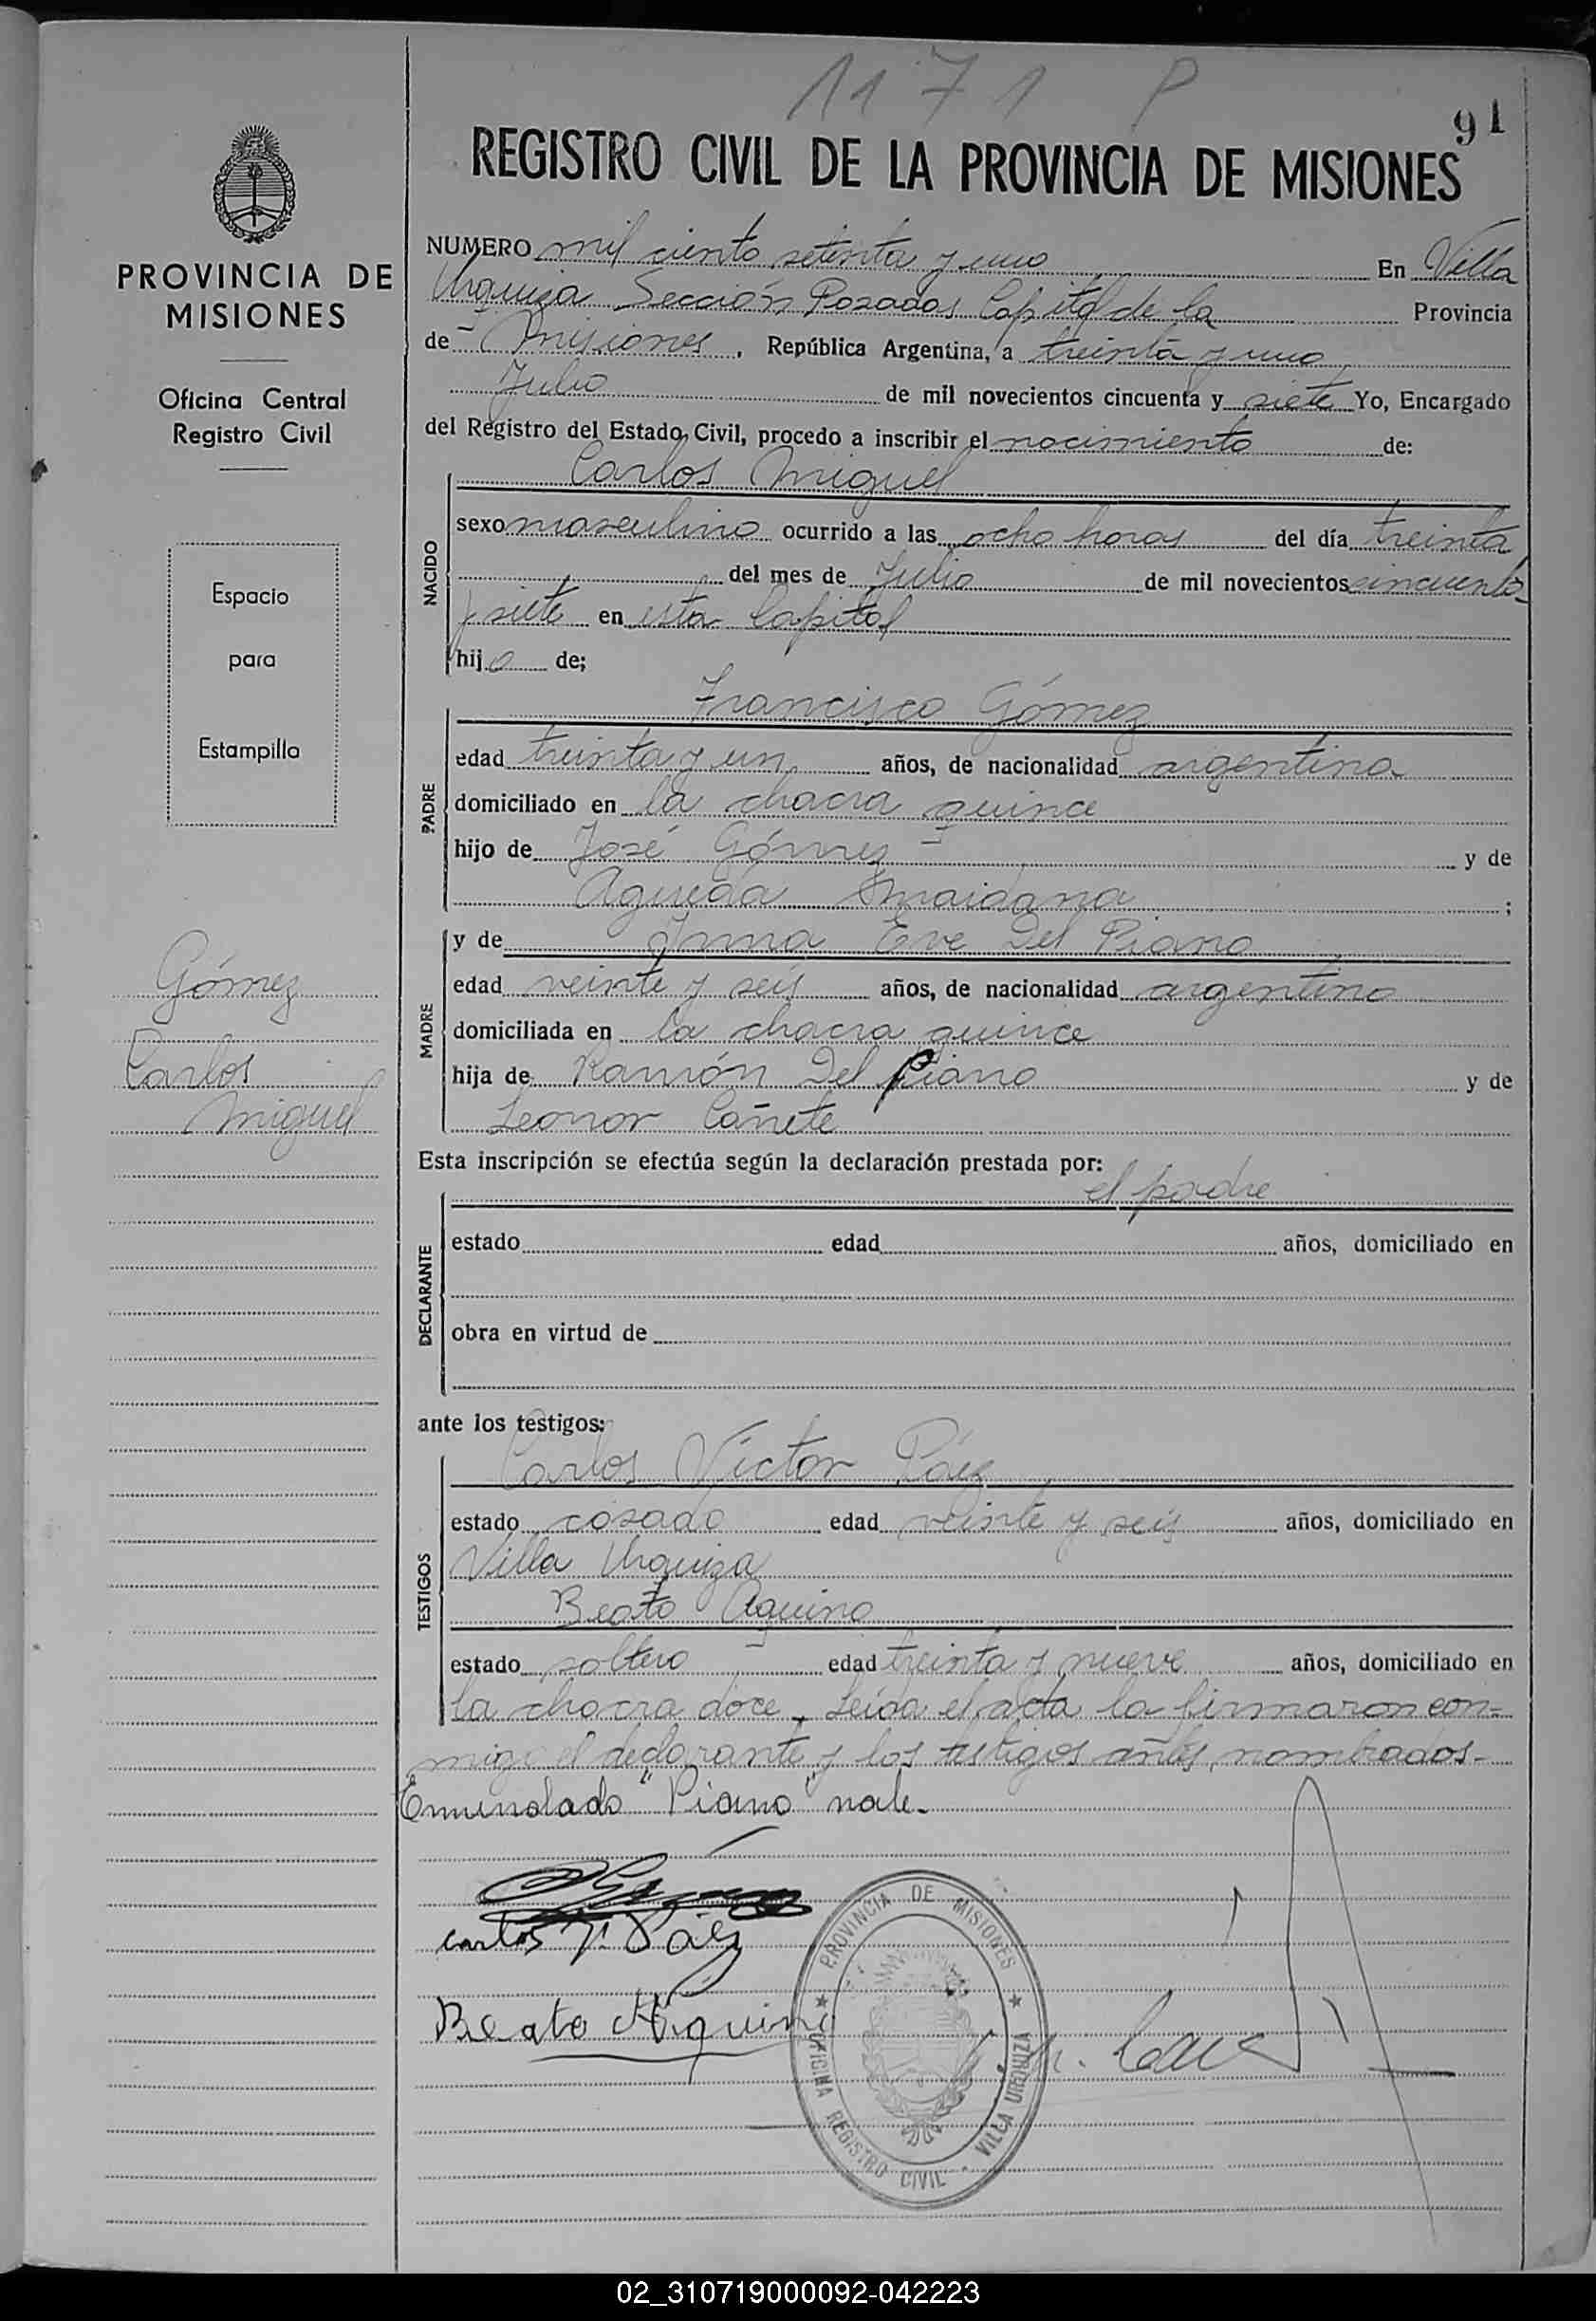 1171 P
91
REGISTRO CIVIL DE LA PROVINCIA DE MISIONES
PROVINCIA DE
MISIONES
Oficina Central
Registro Civil
Espacio
para
Estampilla
Gómez
Carlos
Miguel
NUMERO mil ciento setenta y uno En Villa
Urquiza Sección Posadas Capital de la Provincia
de Misiones, República Argentina, a treinta y uno
Julio de mil novecientos cincuenta y siete Yo, Encargado
del Registro del Estado Civil, procedo a inscribir el nacimiento de:
NACIDO
Carlos Miguel
sexo masculino ocurrido a las ocho horas del día treinta
del mes de Julio de mil novecientos cincuenta
y siete en esta Capital
hijo de;
PADRE
Francisco Gómez
edad treinta y un años, de nacionalidad argentina
domiciliado en la chacra quince
hijo de José Gómez y de
Agueda Maidana ;
MADRE
y de Irma Eve Del Piano
edad veinte y seis años, de nacionalidad argentina
domiciliada en la chacra quince
hija de Ramón Del Piano y de
Leonor Cañete
Esta inscripción se efectúa según la declaración prestada por:
el padre
DECLARANTE
estado edad años, domiciliado en
obra en virtud de
ante los testigos:
TESTIGOS
Carlos Víctor Páez
estado casado edad veinte y seis años, domiciliado en
Villa Urquiza
Beato Aquino
estado soltero edad treinta y nueve años, domiciliado en
la chacra doce. Leída el acta la firmaron con-
migo el declarante y los testigos antes nombrados-
Enmendado "Piano" vale-
Carlos V. Páez
Beato Aquino
PROVINCIA DE MISIONES
OFICINA REGISTRO CIVIL - VILLA URQUIZA
02_310719000092-042223